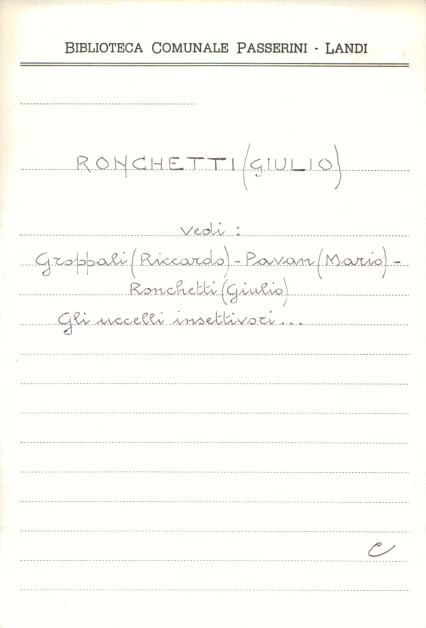 BIBLIOTECA COMUNALE PASSERINI - LANDI
RONCHETTI (GIULIO)
Vedi :
Groppali (Riccardo) - Pavan (Mario) -
Ronchetti (Giulio)
Gli uccelli insettivori...
C